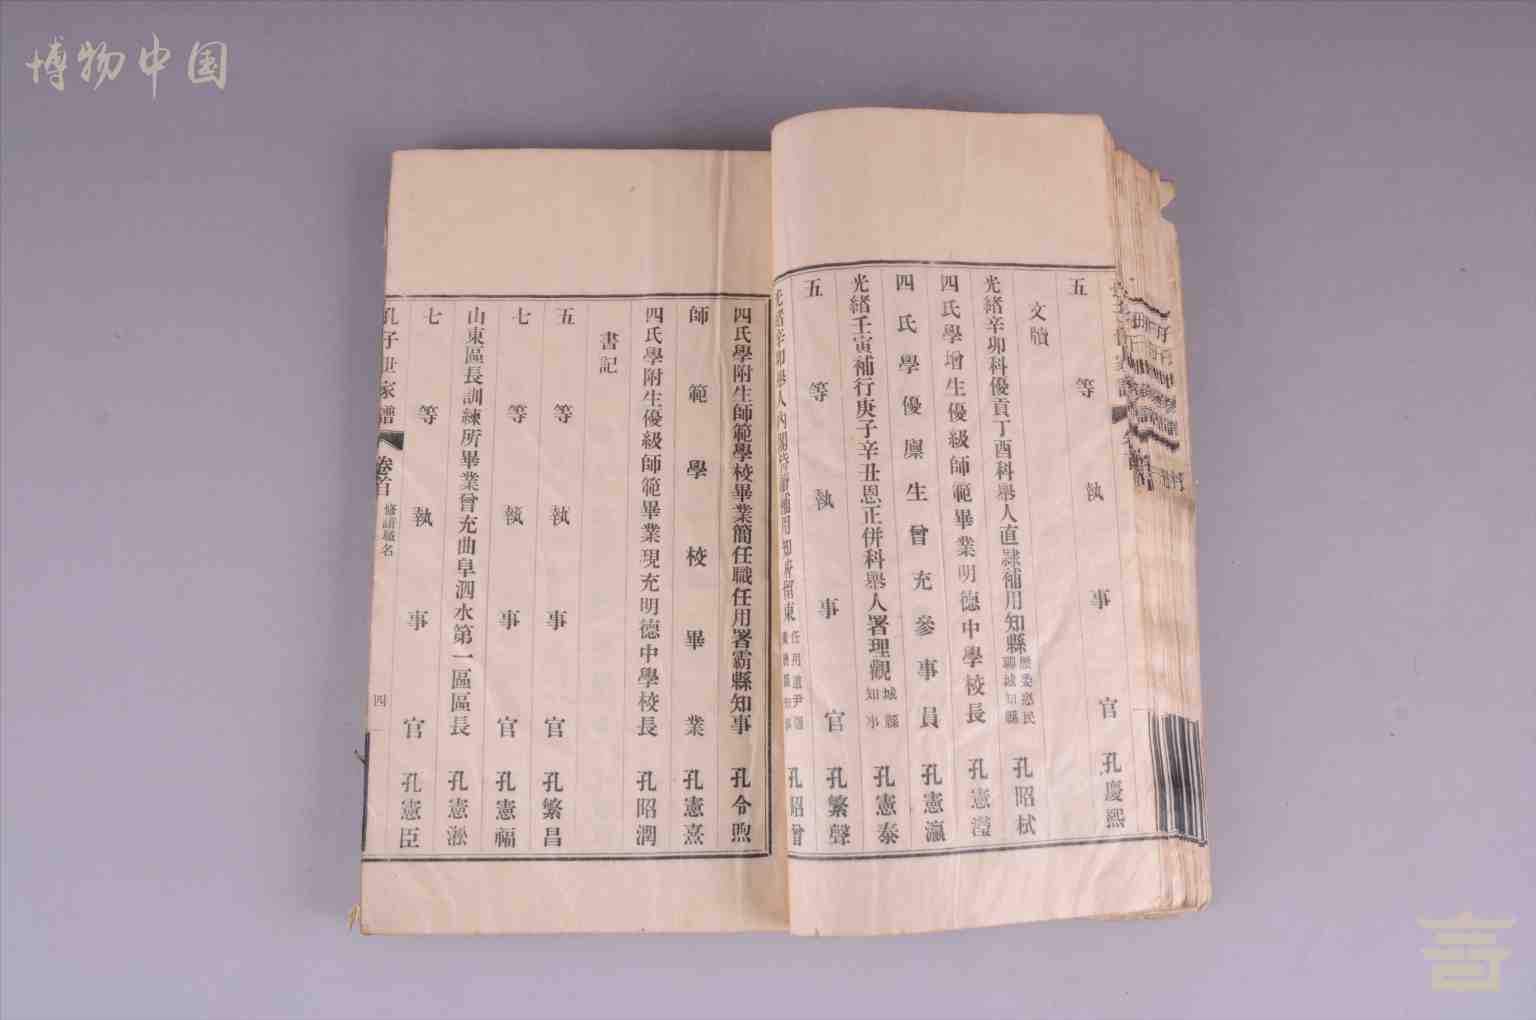 博物中国
五等執事官 孔慶熙
文牘
光緒辛卯科優貢丁酉科舉人直隸補用知縣歷委慈民聊城知縣 孔昭栻
四氏學增生優級師範畢業明德中學校長 孔憲瀅
四氏學優廩生曾充參事員 孔憲瀛
光緒壬寅補行庚子辛丑恩正併科舉人署理觀城縣知事 孔憲泰
五等執事官 孔繁聲
光緒辛卯舉人內閣 補用知府留東 任用道尹 孔昭曾
四氏學附生師範學校畢業簡任職任用署霸縣知事 孔令煦
師範學校畢業 孔憲熹
四氏學附生優級師範畢業現充明德中學校長 孔昭潤
書記
五等執事官 孔繁昌
七等執事官 孔憲福
山東區長訓練所畢業曾充曲阜泗水第一區區長 孔憲淞
七等執事官 孔憲臣
孔子世家譜 卷首 修譜職名 四